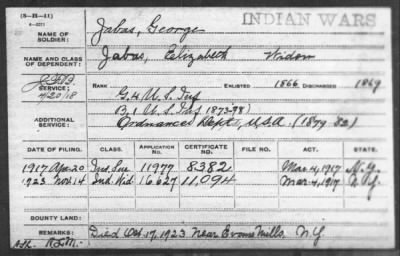 (3-H-11)
INDIAN WARS
NAME OF SOLDIER: Jabas, George
NAME AND CLASS OF DEPENDENT: Jabas, Elizabeth Widow
SERVICE: RANK ENLISTED 1866 DISCHARGED 1869
4/20/18 G. 4 U.S. Inf
ADDITIONAL SERVICE: B. 1 U.S. Inf 1873-78)
Ordnance Dept., U.S.A. (1879-82)
DATE OF FILING. CLASS. APPLICATION NO. CERTIFICATE NO. FILE NO. ACT. STATE.
1917 Apr 20 Ins. Sur 11977 8382 Mar. 4, 1917 N.Y.
1923 Nov 14 Ind. Wid 16627 11,094 Mar 4, 1917 N.Y.
BOUNTY LAND:
REMARKS: Died Oct. 17, 1923 near Evans Mills, N.Y.